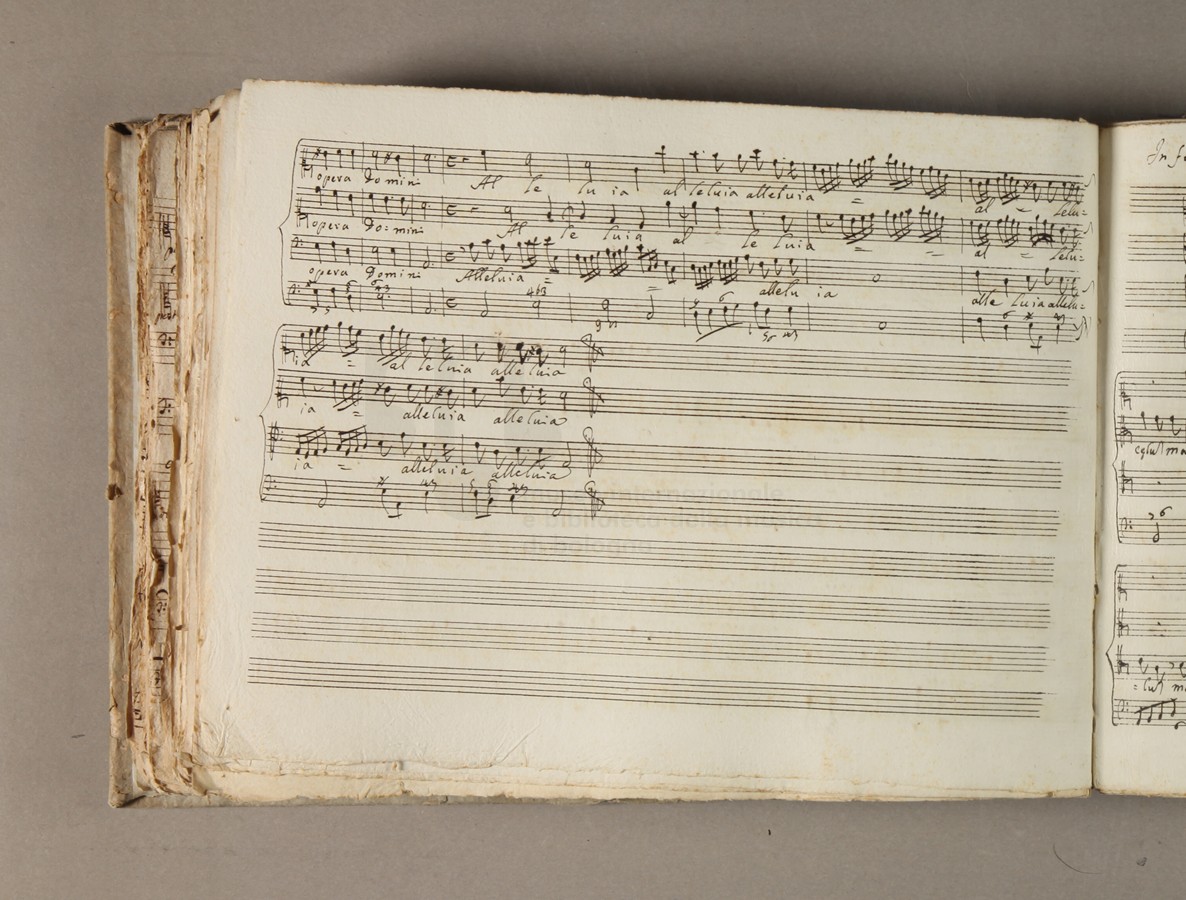 opera Domini Al le lu ia al leluia alleluia = al = lelu=
opera Do=mini Al le luia al le luia = = al = lelu=
opera Domini Alleluia = = allelu ia alle luia allelu=
ia = al leluia alleluia
ia = alleluia alleluia
ia = alleluia alleluia
internazionale
e biblioteca della musica
di bologna
In